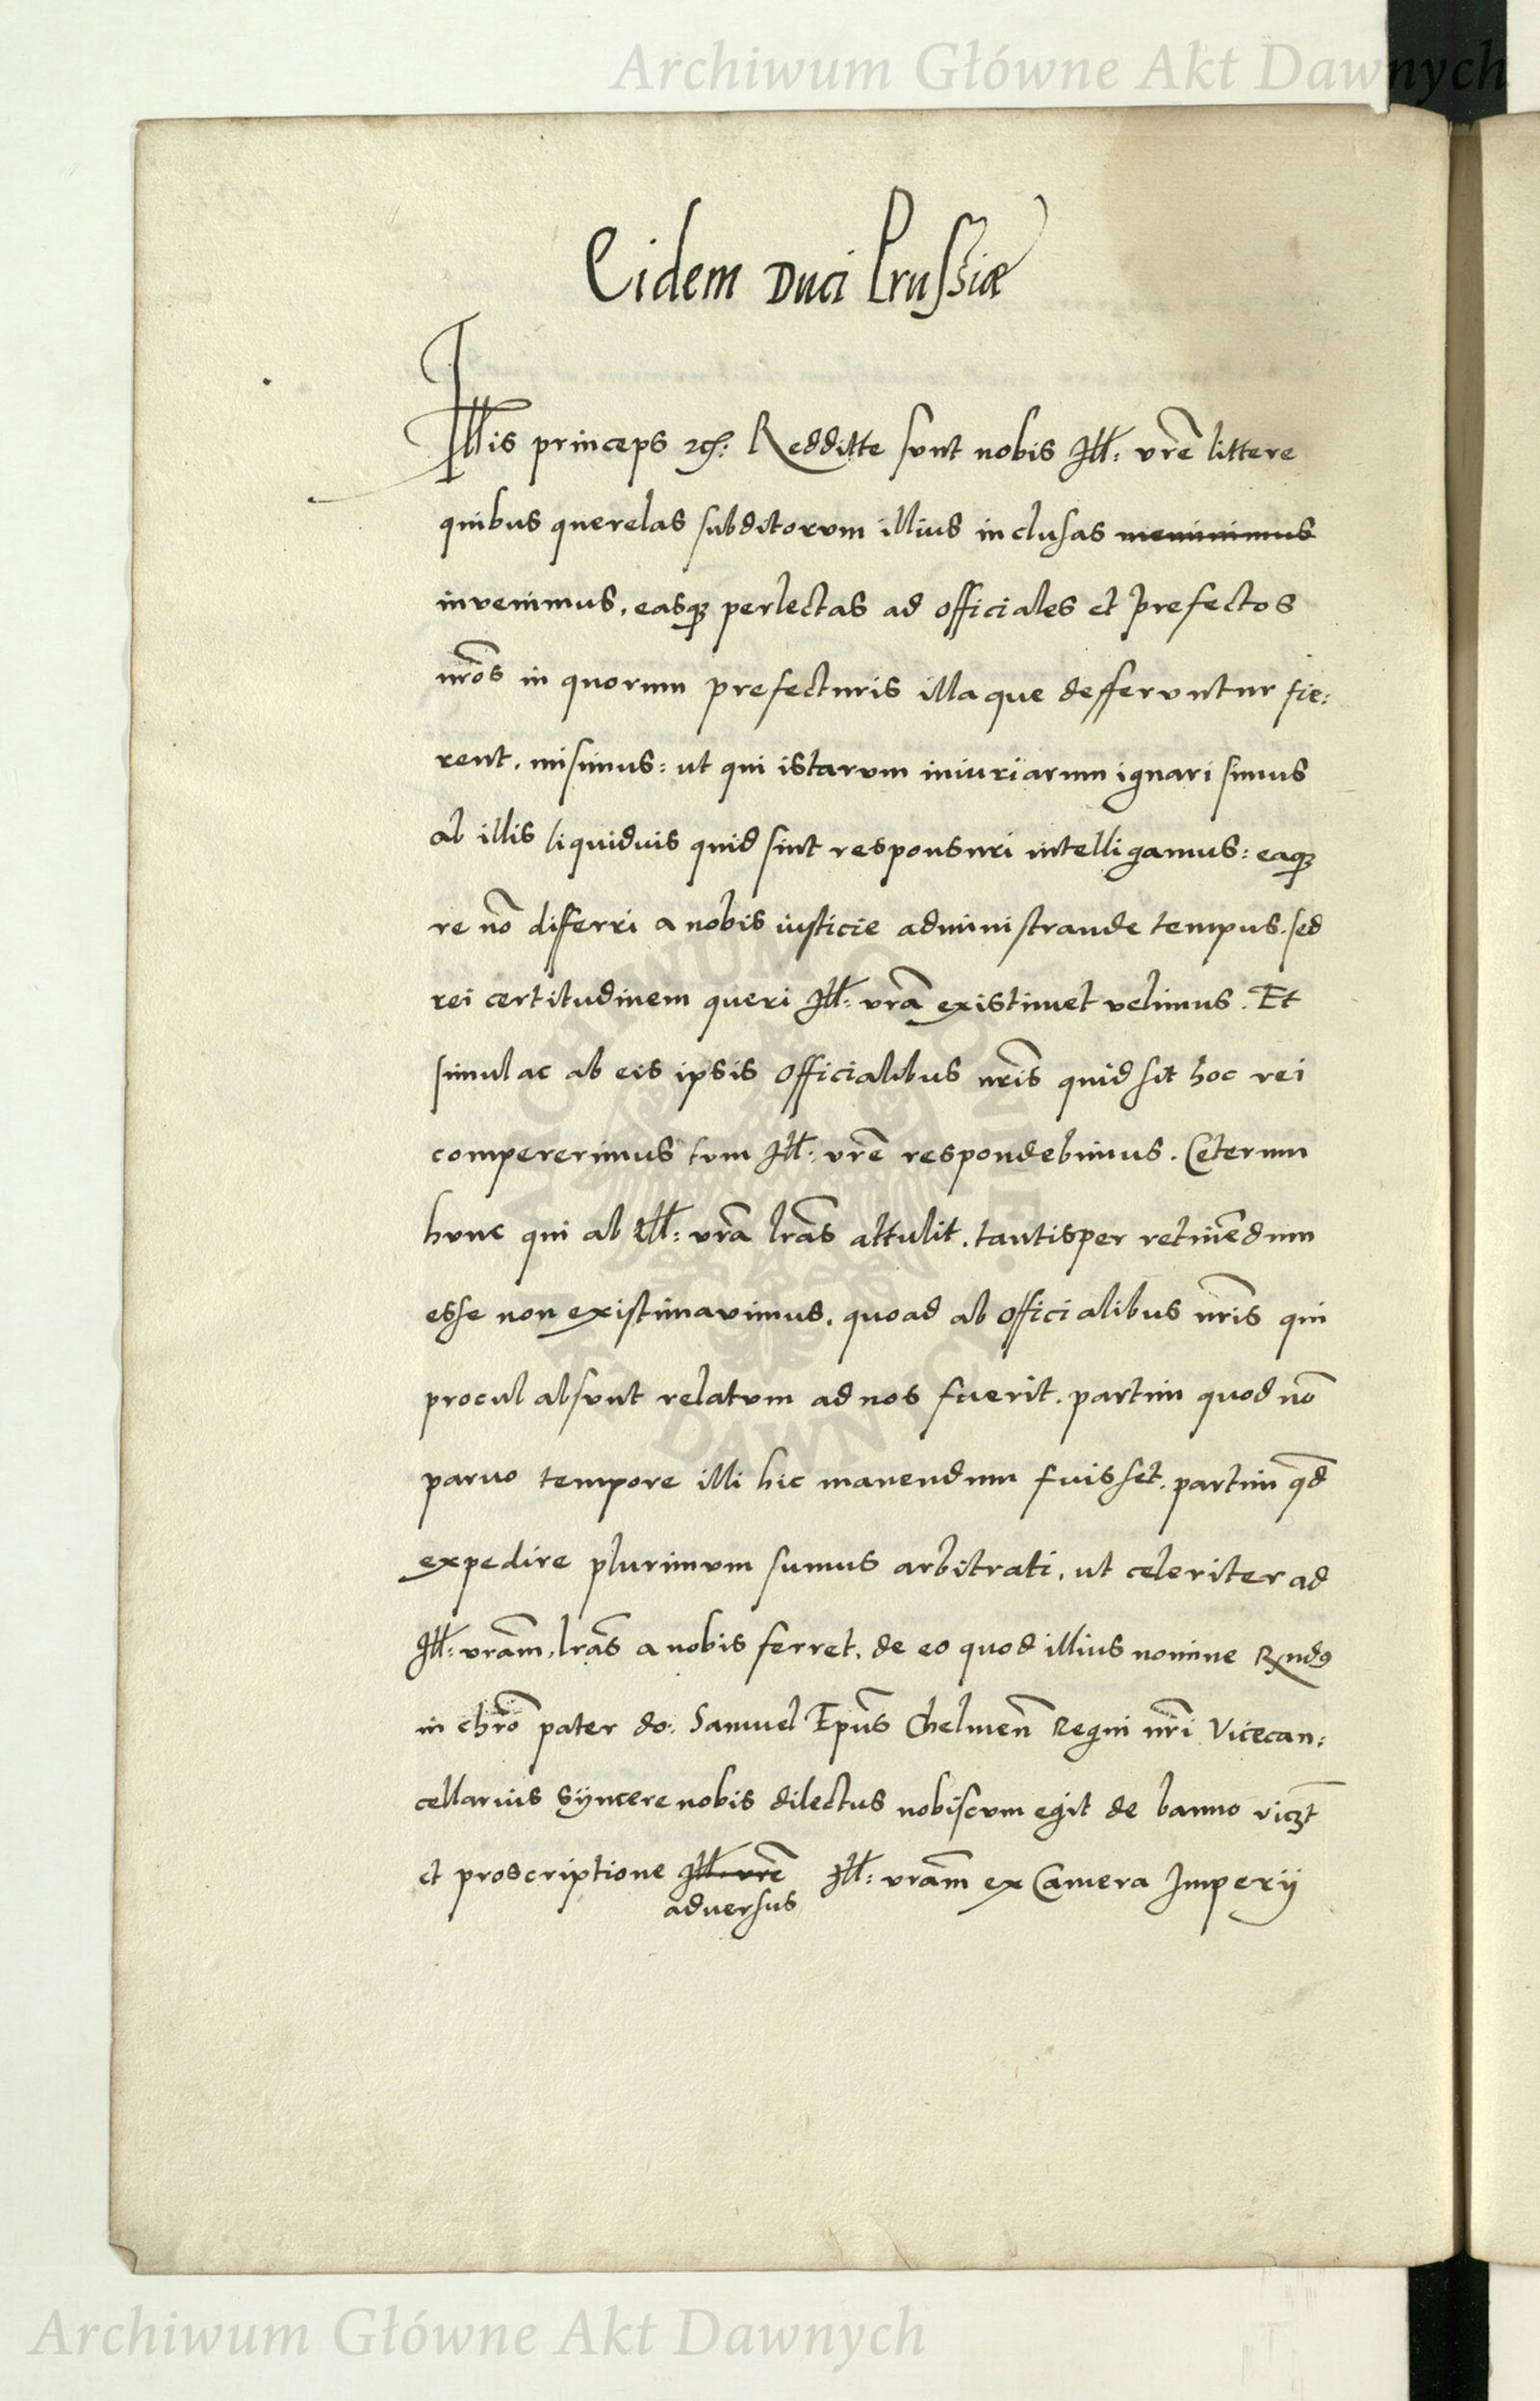 Archiwum Główne Akt Dawnych
Eidem Duci Prussiæ
Illis princeps etc: Redditte sunt nobis Ill: vrē littere
quibus querelas subditorum illius inclusas meminimus
invenimus, easq; perlectas ad officiales et prefectos
nrōs in quorum prefecturis illa que defferuntur fie:
rent, misimus: ut qui istarum iniuriarum ignari simus
ab illis liquiduis quid sint responsuri intelligamus: eaq;
re nō differri a nobis iusticie administrande tempus. sed
rei certitudinem queri Ill: vrā existimet velimus. Et
simul ac ab eis ipsis officialibus nrīs quid sit hoc rei
compererimus tum Ill: vrē respondebimus. Ceterum
hunc qui ab Ill: vrā lrās attulit, tantisper retinēdum
esse non existimavimus, quoad ab officialibus nrīs qui
procul absunt relatum ad nos fuerit. partim quod nō
paruo tempore illi hic manendum fuisset, partim qd̄
expedire plurimum sumus arbitrati, ut celeriter ad
Ill: vrām, lrās a nobis ferret, de eo quod illius nomine Rndꝰ
in chrō pater do: Samuel Epūs Chelmen̄ Regni nrī Vicecan:
cellarius syncere nobis dilectus nobiscum egit de banno viczt
et proscriptione Ill: vrē Ill: vrām ex Camera Imperij
adversus
ARCHIWUM GŁÓWNE AKT DAWNYCH
Archiwum Główne Akt Dawnych